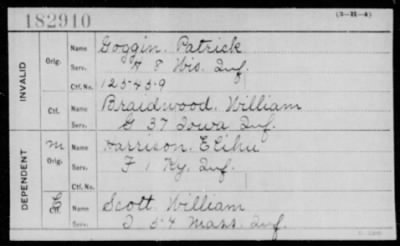 182910
(3-21-4)
INVALID
Orig.
Name Goggin, Patrick
Serv. H 8 Wis. Inf.
Ctf. No. 125459
Ctf.
Name Braidwood, William
Serv. G 37 Iowa Inf.
DEPENDENT
M
Orig.
Name Harrison, Elihu
Serv. F 1 Ky. Inf.
Ctf. No.
Name Scott William
Serv. I 54 Mass. Inf.